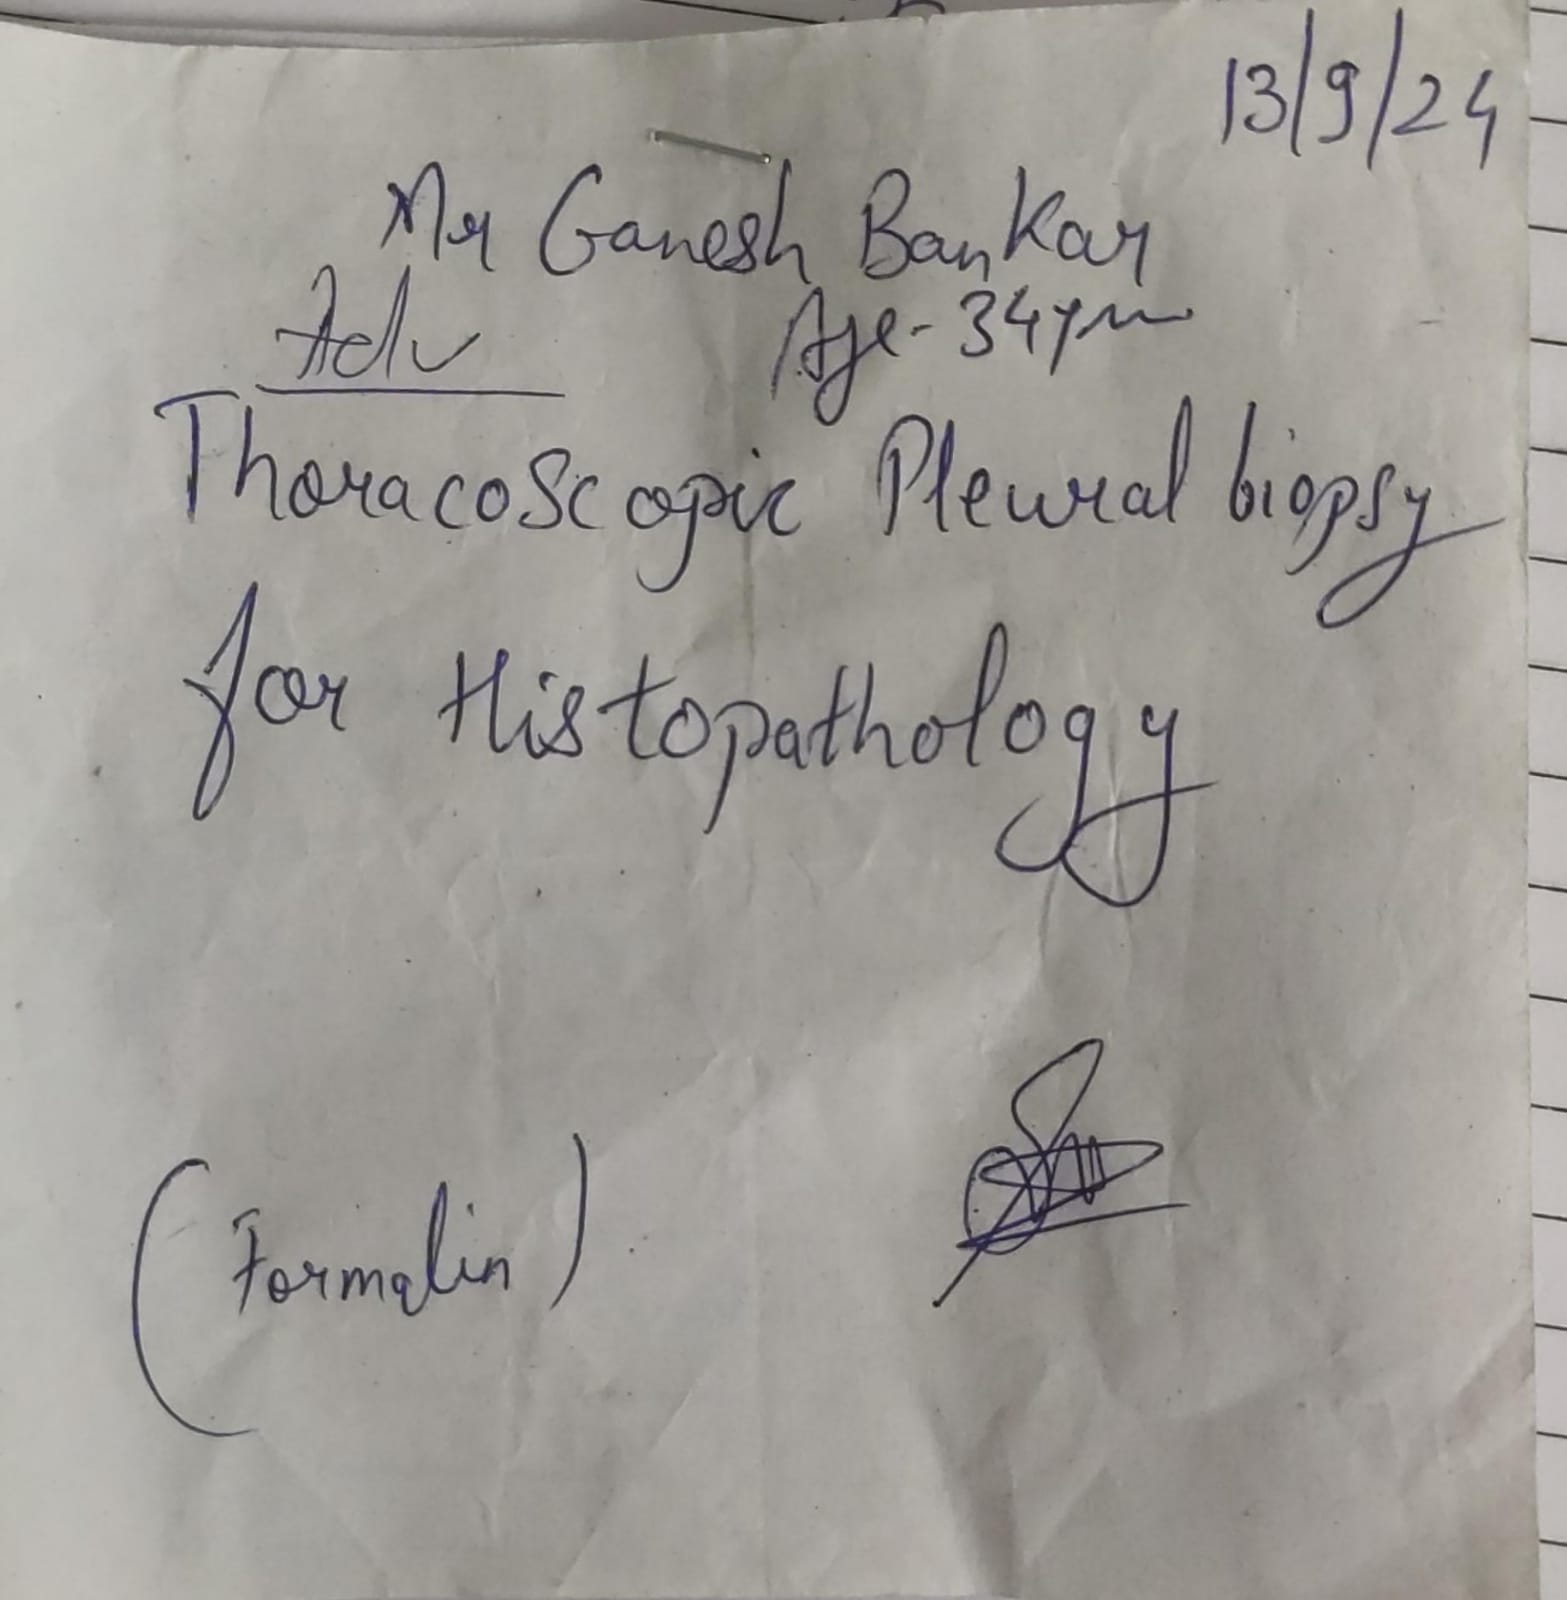 13/9/24
Mr Ganesh Bankar
Adv Age- 34yrs
Thoracoscopic Pleural biopsy
for Histopathology
(Formalin)